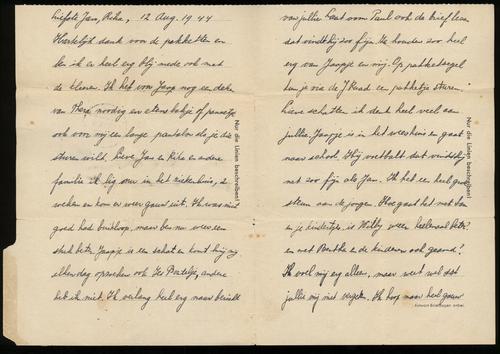 Liefste Jan, Rika, 12 Aug. 1944
Hartelijk dank voor de pakketten en
ben ik er heel erg blij mede ook met
de kleren. Ik heb van Jaap nog een deken
van Theo noodig en etensbakje of pannetje
ook voor mij een lange pantalon als je die
sturen wilt. Lieve Jan en Rika en andere
familie ik lig nu in het ziekenhuis, 2
weken en kom er weer gauw uit. Ik was niet
goed had buikloop, maar ben nu weer een
stuk beter. Jaapje is een schat en komt bij mij
elken dag opzoeken ook Is Portelje, andere
heb ik niet. Ik verlang heel erg naar bericht
Nur die Linien beschreiben!
van jullie. Laat oom Paul ook de brief lezen
dat vindt hij zoo fijn. We houden zoo heel
erg van Jaapje en mij. Op pakketzegel
kun je via de J. Raad een pakketje sturen!
Lieve schatten ik denk heel veel aan
jullie. Jaapje is in het weeshuis en gaat
naar school. Hij voetbalt dat vindt hij
net zoo fijn als Jan. Ik heb een heel groote
steun aan de jongen. Hoe gaat het met Jan
en je kindertjes is Willy weer heelemaal beter?
en met Bertha e de kinderen ook gezond?
Ik voel mij erg alleen, maar weet wel dat
jullie mij niet vergeten. Ik hoop maar heel gauw
Nur die Linien beschreiben!